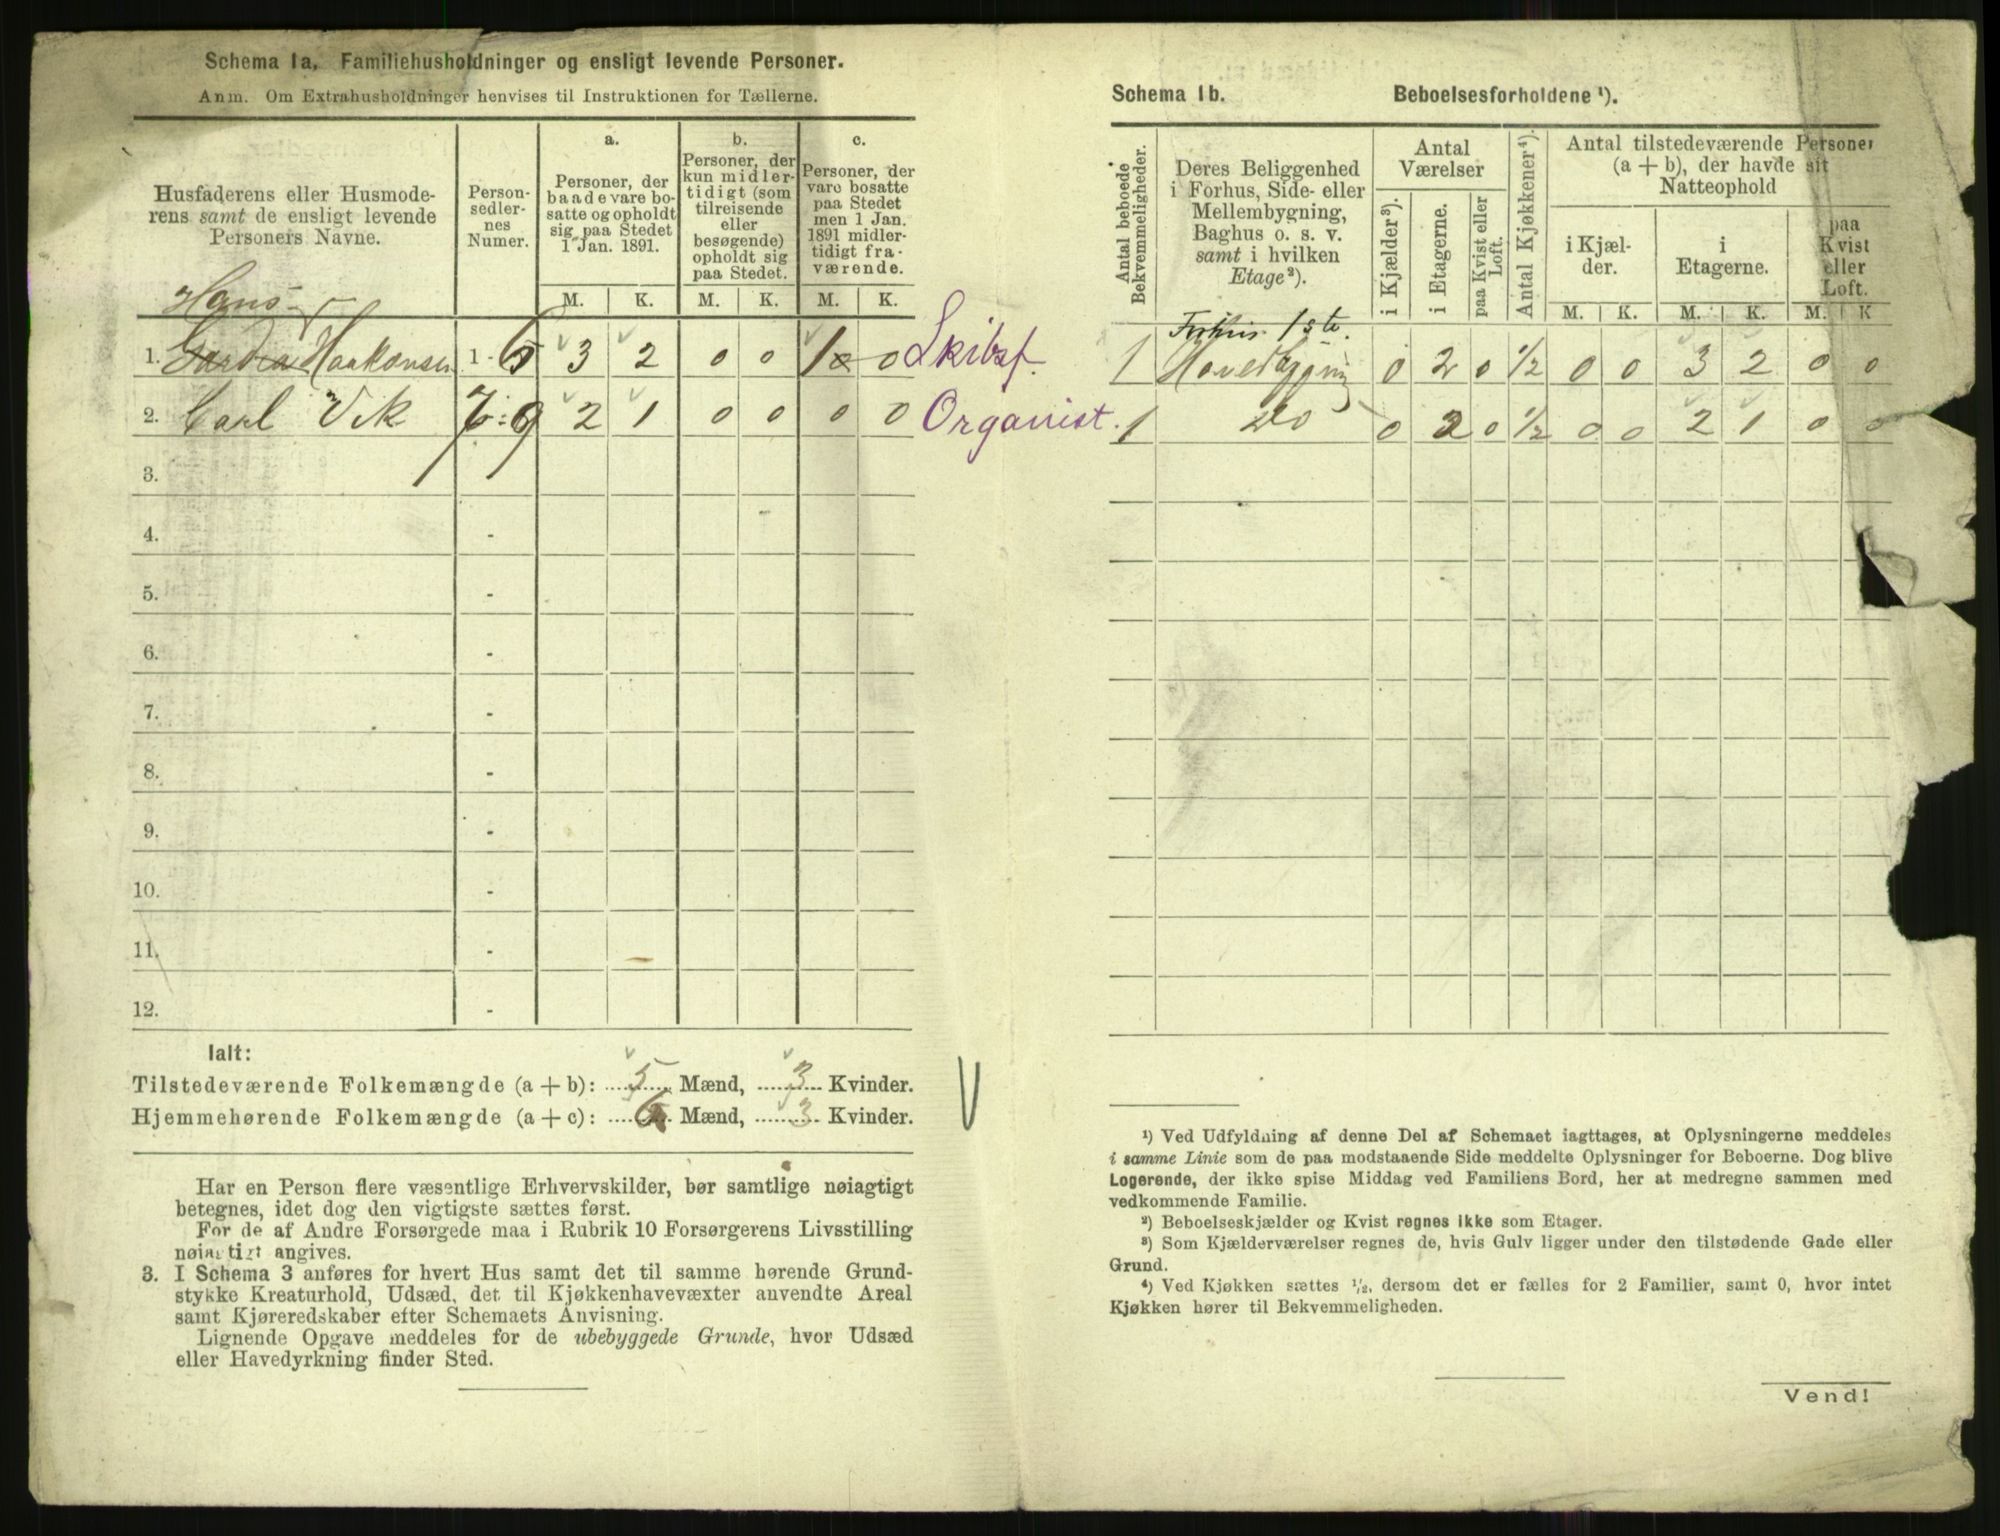 Schema 1a. Familiehusholdninger og ensligt levende Personer.
Anm. Om Extrahusholdninger henvises til Instruktionen for Tællerne.
Husfaderens eller Husmode-
rens samt de ensligt levende
Personers Navne.
Person-
sedler-
nes
Numer.
a.
Personer, der
baade vare bo-
satte og opholdt
sig paa Stedet
1 Jan. 1891.
b.
Personer, der
kun midler-
tidigt (som
tilreisende
eller
besøgende)
opholdt sig
paa Stedet.
c.
Personer, der
vare bosatte
paa Stedet
men 1 Jan.
1891 midler-
tidigt fra-
værende.
M. K. M. K. M. K.
Hans
1. Haakonsen 1 - 6 3 2 0 0 1 0 Skibsf.
2. Carl Vik 7 - 9 2 1 0 0 0 0 Organist.
3.
4. -
5. -
6. -
7. -
8. -
9. -
10. -
11. -
12. -
Ialt:
Tilstedeværende Folkemængde (a + b): 5 Mænd, 3 Kvinder.
Hjemmehørende Folkemængde (a + c): 6 Mænd, 3 Kvinder.
Har en Person flere væsentlige Erhvervskilder, bør samtlige nøiagtigt
betegnes, idet dog den vigtigste sættes først.
For de af Andre Forsørgede maa i Rubrik 10 Forsørgerens Livsstilling
nøiagtigt angives.
3. I Schema 3 anføres for hvert Hus samt det til samme hørende Grund-
stykke Kreaturhold, Udsæd, det til Kjøkkenhavevæxter anvendte Areal
samt Kjøreredskaber efter Schemaets Anvisning.
Lignende Opgave meddeles for de ubebyggede Grunde, hvor Udsæd
eller Havedyrkning finder Sted.
Schema 1b. Beboelsesforholdene ¹).
Antal beboede
Bekvemmeligheder.
Deres Beliggenhed
i Forhus, Side- eller
Mellembygning,
Baghus o. s. v.
samt i hvilken
Etage²).
Antal
Værelser
i Kjælder³).
i Etagerne.
paa Kvist eller
Loft.
Antal Kjøkkener⁴).
Antal tilstedeværende Personer
(a + b), der havde sit
Natteophold
i Kjæl-
der.
i
Etagerne.
paa
Kvist
eller
Loft.
M. K. M. K. M. K
Forhus 1ste.
1 Hovedbygning 0 2 0 ½ 0 0 3 2 0 0
1 Do 0 2 0 ½ 0 0 2 1 0 0
¹) Ved Udfyldning af denne Del af Schemaet iagttages, at Oplysningerne meddeles
i samme Linie som de paa modstaaende Side meddelte Oplysninger for Beboerne. Dog blive
Logerende, der ikke spise Middag ved Familiens Bord, her at medregne sammen med
vedkommende Familie.
²) Beboelseskjælder og Kvist regnes ikke som Etager.
³) Som Kjælderværelser regnes de, hvis Gulv ligger under den tilstødende Gade eller
Grund.
⁴) Ved Kjøkken sættes ½, dersom det er fælles for 2 Familier, samt 0, hvor intet
Kjøkken hører til Bekvemmeligheden.
Vend!